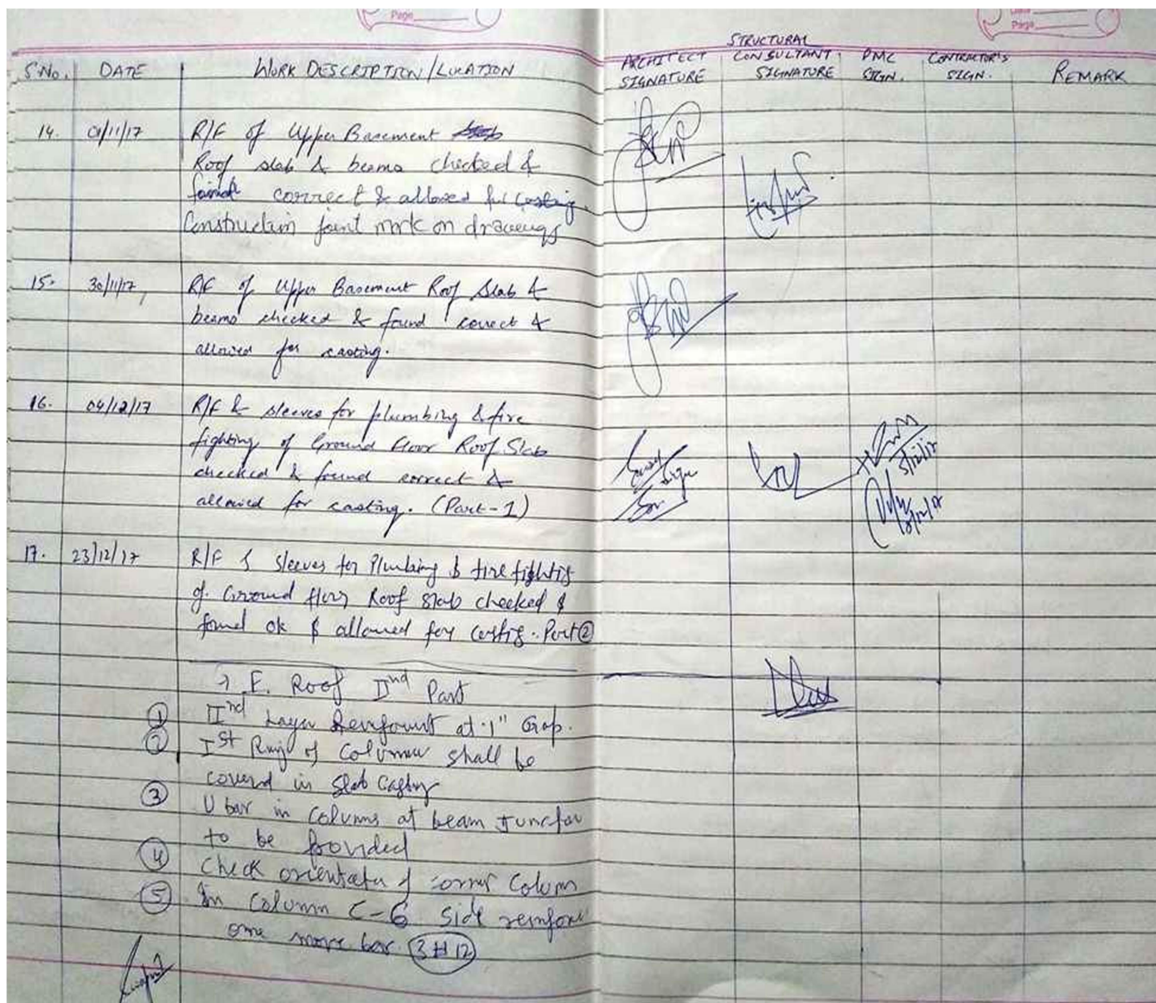 Page
Page
S.No. DATE WORK DESCRIPTION/LOCATION ARCHITECT SIGNATURE STRUCTURAL CONSULTANT SIGNATURE PMC SIGN. CONTRACTOR'S SIGN. REMARK
14. 01/11/17 R/F of Upper Basement
Roof slab & beams checked &
found correct & allowed for casting.
Construction joint mark on drawings
15. 30/11/17 R/F of Upper Basement Roof Slab &
beams checked & found correct &
allowed for casting.
16. 04/12/17 R/F & sleeves for plumbing & fire
fighting of Ground Floor Roof Slab
checked & found correct &
allowed for casting. (Part-1)
5/12/17
17. 23/12/17 R/F & Sleeves for Plumbing & fire fightig
of Ground floor Roof Slab checked &
found ok & allowed for castig. Part ②
F. Roof IInd Part
① IInd Layer at 1" Gap.
② Ist Ring of Column shall be
coverd in Slab Casting
③ U bar in Columns at beam
to be provided
④ Check of Column
⑤ In Column C-6 Side
one more bar 3#12